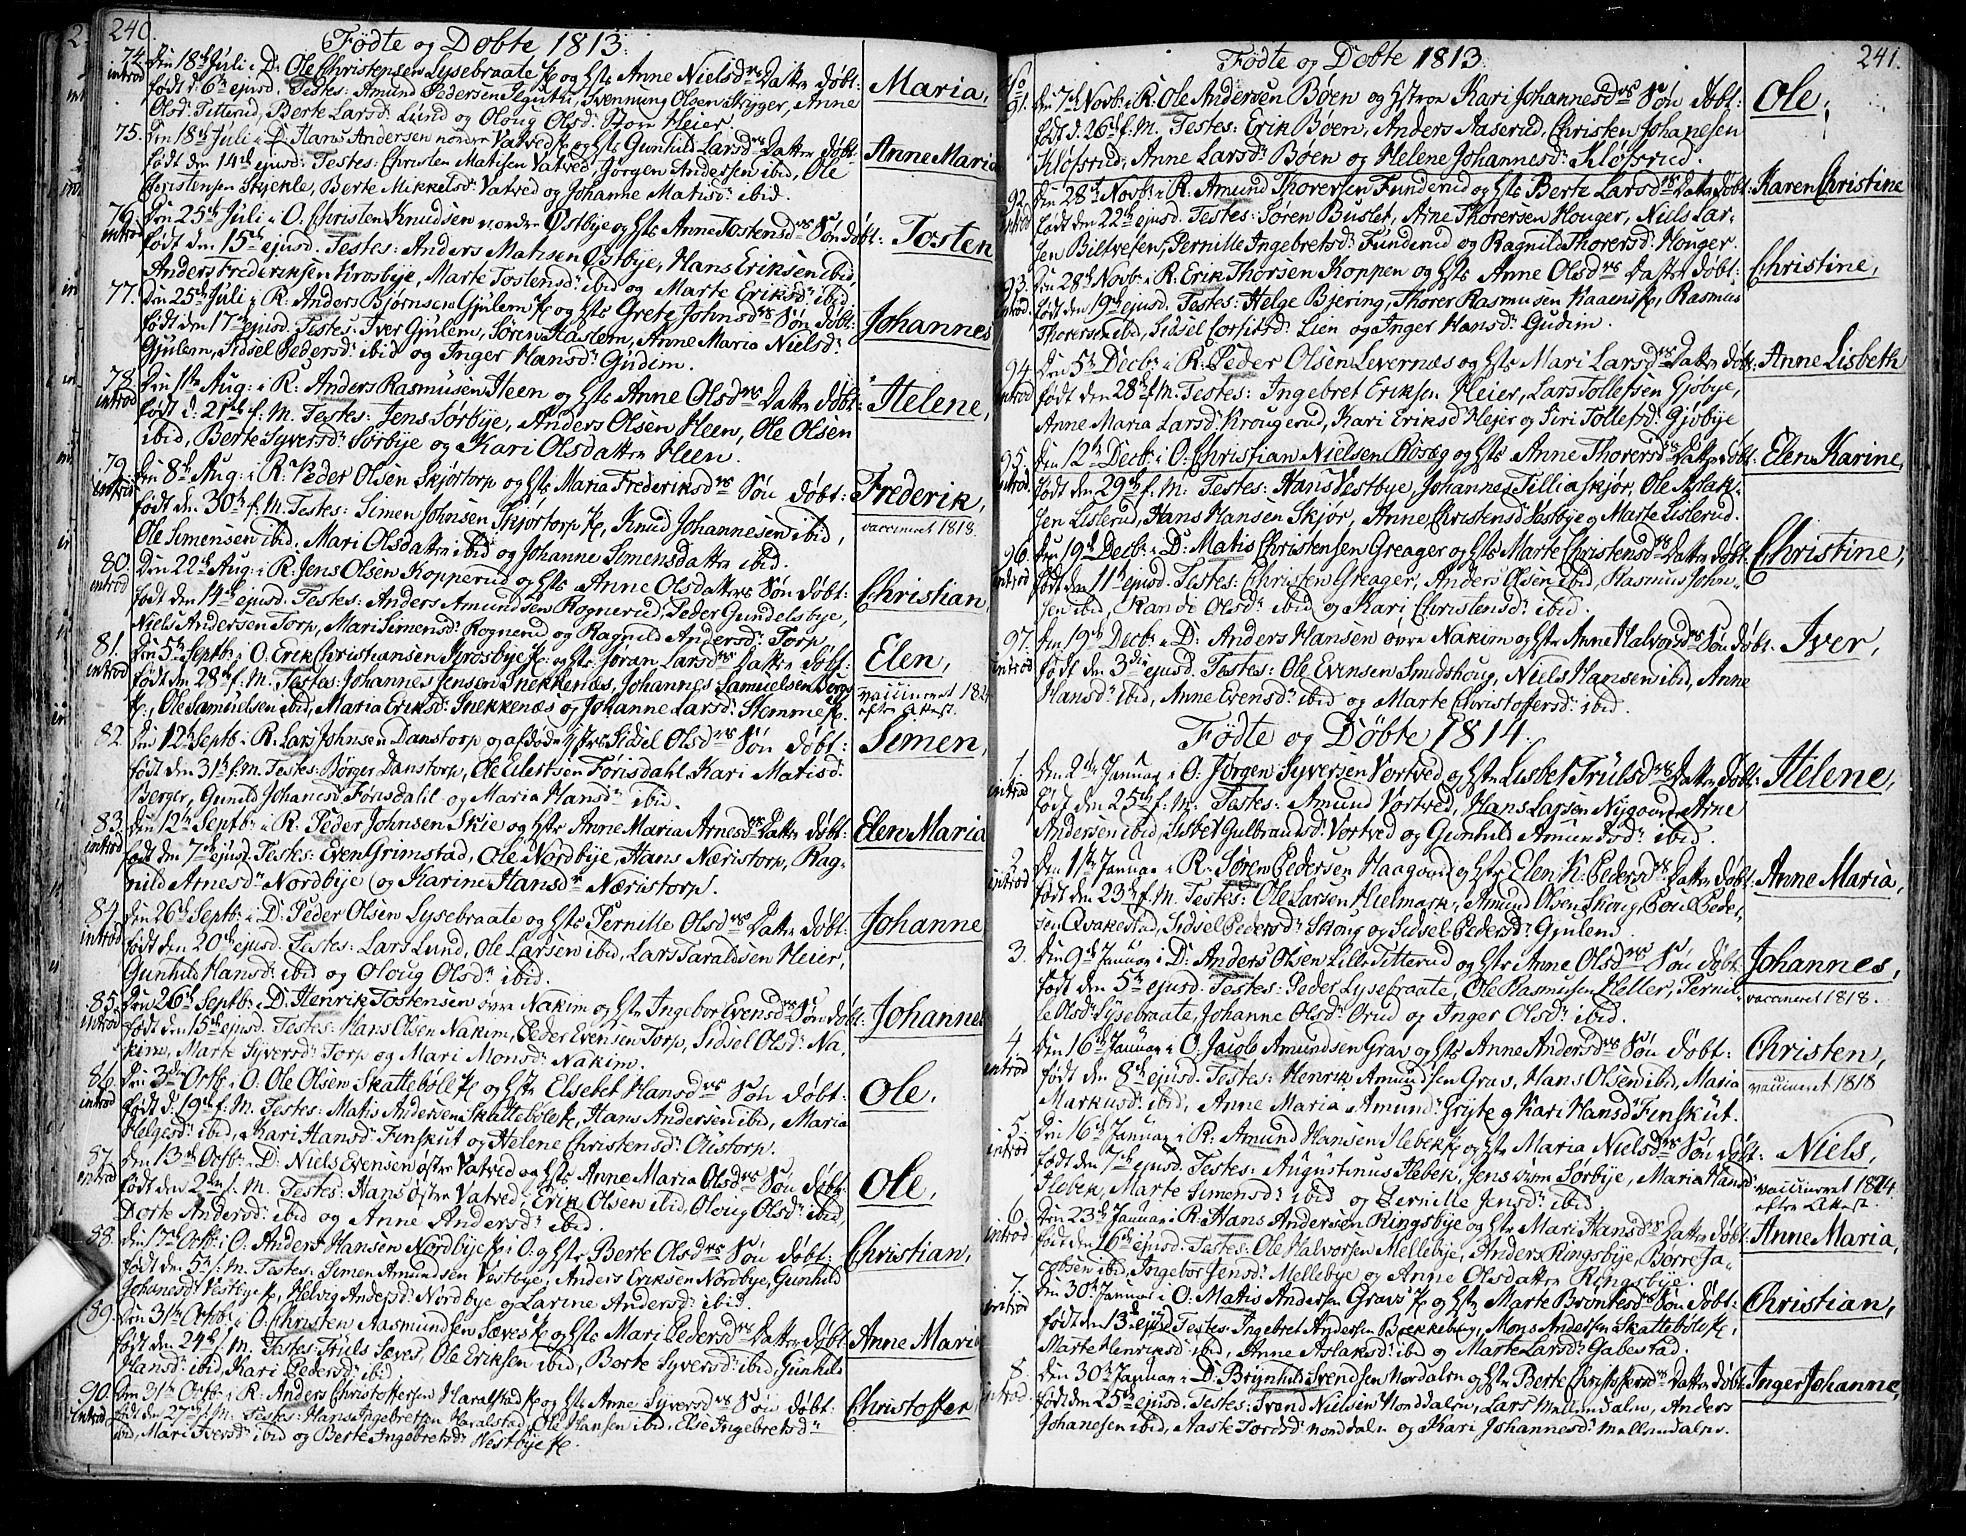 240.
Fødte og Døbte 1813.
74. Den 18de Juli i D: Ole Christensen Lysebraate og Hst: Anne Nielsdrs Datter døbt: Maria,
introd født d. 6te ejusd. Testes: Amund Pedersen, Svenning Olsen Stryger, Anne
Olsd: Titterud, Berte Larsd: Lund og Oloug Olsd: Store Heier.
75. Den 18de Juli i D: Hans Andersen nordre Vatved og Hst: Gunhild Larsdrs Datter døbt: Anne Maria
født den 14de ejusd: Testes: Christen Matisen Vatved, Jørgen Andersen ibid, Ole
Christensen Stychle, Berte Mikkelsd: Vatved og Johanne Matisd: ibid.
76. Den 25de Juli i O. Christen Knudsen nordre Østbye og Hst: Anne Tostensdrs Søn døbt: Tosten
introd født den 15de ejusd. Testes: Anders Madsen Østbye, Hans Eriksen ibid,
Anders Frederiksen Krosbye, Marte Tostensd: ibid og Marte Eriksd: ibid.
77. Den 25de Juli i R: Anders Bjørnsen Gjulem og Hst: Grete Johnsdrs Søn døbt: Johannes
født den 17de ejusd. Testes: Iver Gjulem, Søren Haslem, Anne Maria Nielsd:
Gjulem, Sidsel Pedersd: ibid og Inger Hansd: Gudim.
78. Den 1ste Aug: i R: Anders Rasmusen Heen og Hst: Anne Olsdrs Datter døbt: Helene,
introd født d. 21de f. M. Testes: Jens Sørbye, Anders Olsen Heen, Ole Olsen
ibid, Berte Syversd: Sørbye og Kari Olsdatter Heen.
79. Den 8de Aug: i R: Peder Olsen Skjørtorp og Hst: Maria Frederiksdrs Søn døbt: Frederik,
introd født den 30te f. M. Testes: Simen Johnsen Skjørtorp, Knud Johannesen ibid, vaccineret 1818.
Ole Simensen ibid, Mari Olsdatter ibid og Johanne Simensdatter ibid.
80. Den 22de Aug: i R: Jens Olsen Kopperud og Hst: Anne Olsdatters Søn døbt: Christian,
introd født den 14de ejusd. Testes: Anders Amundsen Rognerud, Peder Gundelsbye,
Niels Andersen Torp, Mari Simensd: Rognerud og Ragnild Andersd: Torp.
81. Den 5te Septbr: i O. Erik Christiansen Krosbye og Hst: Jøran Larsdrs Datter døbt: Elen,
introd født den 28de f. M. Testes: Johannes Jensen Snekkenæs, Johannes Samuelsen Berge vaccineret
Ole Samuelsen ibid, Maria Eriksd: Snekkenæs og Johanne Larsd: Stemme. efter Attest.
82. Den 12te Septb: i R: Lars Johnsen Danstorp og afdøde Hstrs Sidsel Olsdrs Søn døbt: Simen,
født den 31te f. M. Testes: Børger Danstorp, Ole Eilertsen Førisdahl, Kari Matisd:
Berger, Gunild Johanesd: Førisdahl og Maria Hansd: ibid.
83. Den 12te Septb: i R: Peder Johnsen Skie og Hst: Anne Maria Arnesdrs Datter døbt: Elen Maria
introd født den 7de ejusd. Testes: Even Grimstad, Ole Nordbye, Hans Næristorp, Rag-
nild Arnesd: Nordbye og Karine Hansd: Næristorp.
84. Den 26de Septb: i D: Peder Olsen Lysebraate og Hst: Pernille Olsdrs Datter døbt: Johanne
introd født den 20de ejusd. Testes: Lars Lund, Ole Larsen ibid, Lars Taraldsen Heier,
Gunhild Hansd: ibid og Oloug Olsd: ibid.
85. Den 26de Septb: i D: Henrik Tostensen øvre Nakim og Hst: Ingebor Evensdrs Søn døbt: Johannes
introd født den 15de ejusd. Testes: Hans Olsen Nakim, Peder Evensen Torp, Sidsel Olsd: Na-
kim, Marte Syversd: Torp og Mari Monsd: Nakim.
86. Den 3die Octb: i O: Ole Olsen Skattebøle og Hst: Elsebet Hansdrs Søn døbt: Ole.
introd født d. 19de f. M. Testes: Matis Andersen Skattebøle, Hans Andersen ibid, Maria
Helgesd: ibid, Kari Hansd: Finskut og Helene Christensd: Olistorp.
87. Den 13de Octb: i D: Niels Evensen østre Vatved og Hst: Anne Maria Olsdrs Søn døbt: Ole.
introd født den 2den f. M. Testes: Hans østre Vatved, Erik Olsen ibid, Oloug Olsd: ibid,
Dorte Andersd: ibid og Anne Andersd: ibid.
88. Den 17de Octb: i O: Anders Hansen Nordbye i O: og Hst: Berte Olsdrs Søn døbt: Christian.
født den 5te f. M. Testes: Simen Amundsen Vestbye, Anders Eriksen Nordbye, Gunhild
Johanesd: Vestbye, Helvig Andersd: Nordbye og Larine Andersd: ibid.
89. Den 31te Octb: i O: Christen Aasmundsen Sæves og Hst: Mari Pedersdrs Datter døbt: Anne Maria
født den 24de f. M. Testes: Truls Sæves, Ole Eriksen ibid, Berte Syversd: ibid, Gunhild
Hansd: ibid, Kari Pedersd: ibid
90. Den 31te Octb: i R: Anders Christoffersen Haralstad og Hst: Anne Syversdrs Søn døbt: Christoffer
introd født den 27de f. M. Testes: Hans Ingebretsen Haralstad, Ole Hansen ibid, Else Ingebretsd:
ibid, Mari Iversd: ibid og Berte Ingebretsd: Westbye.
241.
Fødte og Døbte 1813.
91. Den 7de Novb: i R: Ole Andersen Bøen og Hstroe Kari Johannesdrs Søn døbt: Ole,
født d. 26de f. M. Testes: Erik Bøen, Anders Aaserud, Christen Johanesen
Kløfsrud, Anne Larsd: Bøen og Helene Johannesd: Kløfsrud.
92. Den 28de Novb: i R: Amund Thorersen Funderud og Hst: Berte Larsdrs Datter døbt: Karen Christine
introd født den 22de ejusd. Testes: Søren Buslet, Arne Thorersen Houger, Niels Lar-
sen Biltvesen, Pernille Ingebretsd: Funderud og Ragnild Thorersd: Houger.
93. Den 28de Novb: i R: Erik Thorsen Koppen og Hst: Anne Olsdrs Datter døbt: Christine,
introd. født den 19de ejusd. Testes: Helge Bjering, Thorer Rasmusen Kaaen, Rasmus
Thorersen ibid, Sidsel Lien og Inger Hansd: Gudim.
94. Den 5te Decb: i R: Peder Olsen Levernæs og Hst: Mari Larsdrs Datter døbt: Anne Lisbeth
introd født den 28de f. M. Testes: Ingebret Eriksen Heier, Lars Tollefsen Gjøbye,
Anne Maria Larsd: Krougerud, Kari Eriksd: Hejer og Siri Tollefsd: Gjøbye
95. Den 12te Decb: i O: Christian Nielsen Rosæg og Hst: Anne Thorersdrs Datter døbt: Elen Karine,
introd født den 29de f. M: Testes: Hans Vestbye, Johannes Tillia Skjør, Ole Aslak-
sen Lislerud, Hans Hansen Skjør, Anne Christensd: Vestbye og Marte Lislerud.
96. Den 19de Decb: i D: Matis Christensen Greager og Hst: Marte Christensdrs Datter døbt: Christine,
introd født den 11te ejusd. Testes: Christen Greager, Anders Olsen ibid, Rasmus John-
sen ibid, Randi Olsd: ibid og Kari Christensd: ibid.
97. Den 19de Decb: i D: Anders Hansen øvre Nakim og Hst: Anne Halvorsdrs Søn døbt. Iver,
introd født den 3die ejusd. Testes: Ole Evensen Smidshoug, Niels Hansen ibid, Anne
Hansd: ibid, Anne Evensd: ibid og Marte Christoffersd: ibid.
Fødte og Døbte 1814.
1. Den 2den Januar i O: Jørgen Syversen Vortved og Hst: Lisbet Trulsdrs Datter døbt: Helene,
introd født den 25de f. M. Testes: Amund Vortved, Hans Larsen Nygaard, Arne
Andersen ibid, Lisbet Gulbransd: Vortved og Gunhild Amundsd: ibid.
2. Den 1ste Januar i R: Søren Pedersen Haagaard og Hst: Elen K: Pedersdrs Datter døbt: Anne Maria,
introd født den 23de f. M. Testes: Ole Larsen Hielmark, Amund Olsen Skoug, Poul Peder-
sen Qvakestad, Sidsel Pedersd: Skoug og Sidsel Pedersd: Gjulem.
3. Den 9de Januar i D: Anders Olsen Lille Titterud og Hst: Anne Olsdrs Søn døbt Johannes,
født den 5te ejusd. Testes: Peder Lysebraate, Ole Rasmusen Heller, Pernil- vaccineret 1818.
le Olsd: Lysebraate, Johanne Olsd: Orud og Inger Olsd: ibid.
4. Den 16de Januar i O. Jacob Amundsen Grav og Hst: Anne Andersdrs Søn døbt: Christen,
introd født den 8de ejusd. Testes: Henrik Amundsen Grav, Hans Olsen ibid, Maria vaccineret 1818
Markusd: ibid, Anne Maria Amund: Gryte og Kari Hansd: Finskut.
5. Den 16de Januar i R: Amund Hansen Hebek og Hst: Maria Nielsdrs Søn døbt: Niels,
introd født den 7de ejusd. Testes: Augustinus Hebek, Jens øvre Sørbye, Maria Hansd: vaccineret
Hebek, Marte Simensd: ibid og Pernille Jensd: ibid efter Attest.
6. Den 23de Januar i R: Hans Andersen Ringsbye og Hst: Mari Hansdrs Datter døbt: Anne Maria,
introd født den 16de ejusd. Testes: Ole Halvorsen Mellebye, Anders Ringsbye, Børre Ja-
cobsen ibid, Ingebor Jensd: Mellebye og Anne Olsdatter Ringsbye.
7. Den 30te Januar i O: Matis Andersen Gravs og Hst: Marte Brynhesdrs Søn døbt: Christian,
introd født den 13de ejusd Testes: Ingebret Andersen Brekkeberg, Mons Andersen Skattebøle,
Marte Henriksd: ibid, Anne Aslaksd: ibid og Marte Larsd: Gabestad.
8. Den 30te Januar i D: Brynhild Svendsen Nordalen og Hst: Berte Christoffersdrs Datter døbt: Inger Johanne,
introd født den 25de ejusd. Testes: Svend Nielsen Norddalen, Lars Mellemdalen, Anders
Johanesen ibid, Aaste Tordsd: Norddalen og Kari Johannesd: Mellemdalen.